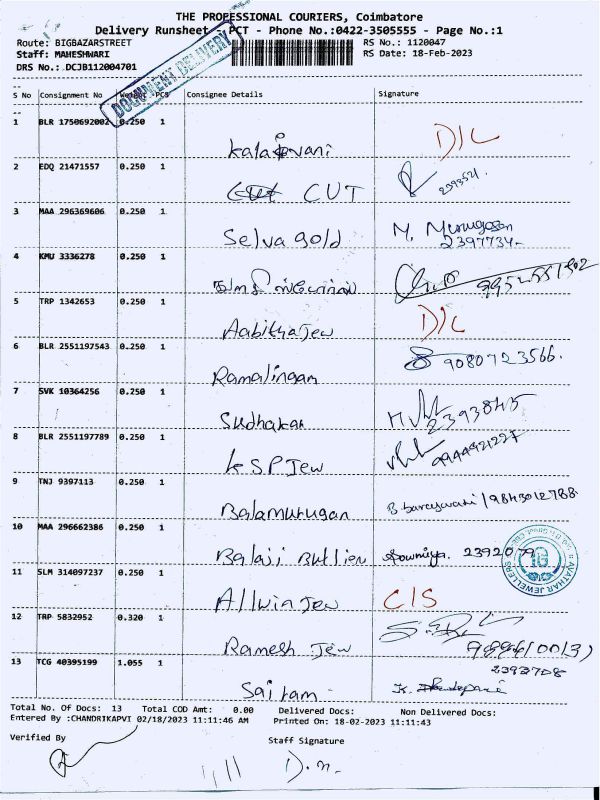 THE PROFESSIONAL COURIERS, Coimbatore
Delivery Runsheet - PCT - Phone No.:0422-3505555 - Page No.:1
Route: BIGBAZARSTREET RS No.: 1120047
Staff: MAHESHWARI RS Date: 18-Feb-2023
DRS No.:DCJB112004701
DOCUMENT DELIVERY
S No Consignment No Weight PCS Consignee Details Signature
1 BLR 1750692002 0.250 1
Kalaivani D/L
2 EDQ 21471557 0.250 1
CUT
3 MAA 296369606 0.250 1
Selva gold M. Murugesan
2397734
4 KMU 3336278 0.250 1
5 TRP 1342653 0.250 1
Aabitha Jew D/L
6 BLR 2551197543 0.250 1
Ramalingam 9080723566.
7 SVK 10364256 0.250 1
Sudhakar 2393845
8 BLR 2551197789 0.250 1
KSP Jew
9 TNJ 9397113 0.250 1
Balamurugan 9843012788
10 MAA 296662386 0.250 1
Balaji Bullien Sowmiya. 2392079
AVATHAR JEWELLERS
11 SLM 314097237 0.250 1
Allwin Jew C/S
12 TRP 5832952 0.320 1
Ramesh Jew
13 TCG 40395199 1.055 1 2393708
Sairam
Total No. Of Docs: 13 Total COD Amt: 0.00 Delivered Docs: Non Delivered Docs:
Entered By :CHANDRIKAPVI 02/18/2023 11:11:46 AM Printed On: 18-02-2023 11:11:43
Verified By Staff Signature